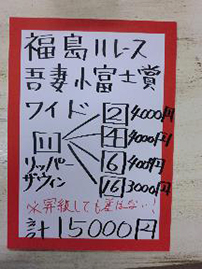 福島11レース
吾妻小富士賞
ワイド 2 4000円
11 4 4000円
リッパー 6 400円
ザウィン 16 3000円
昇級しても差はない!
計15000円